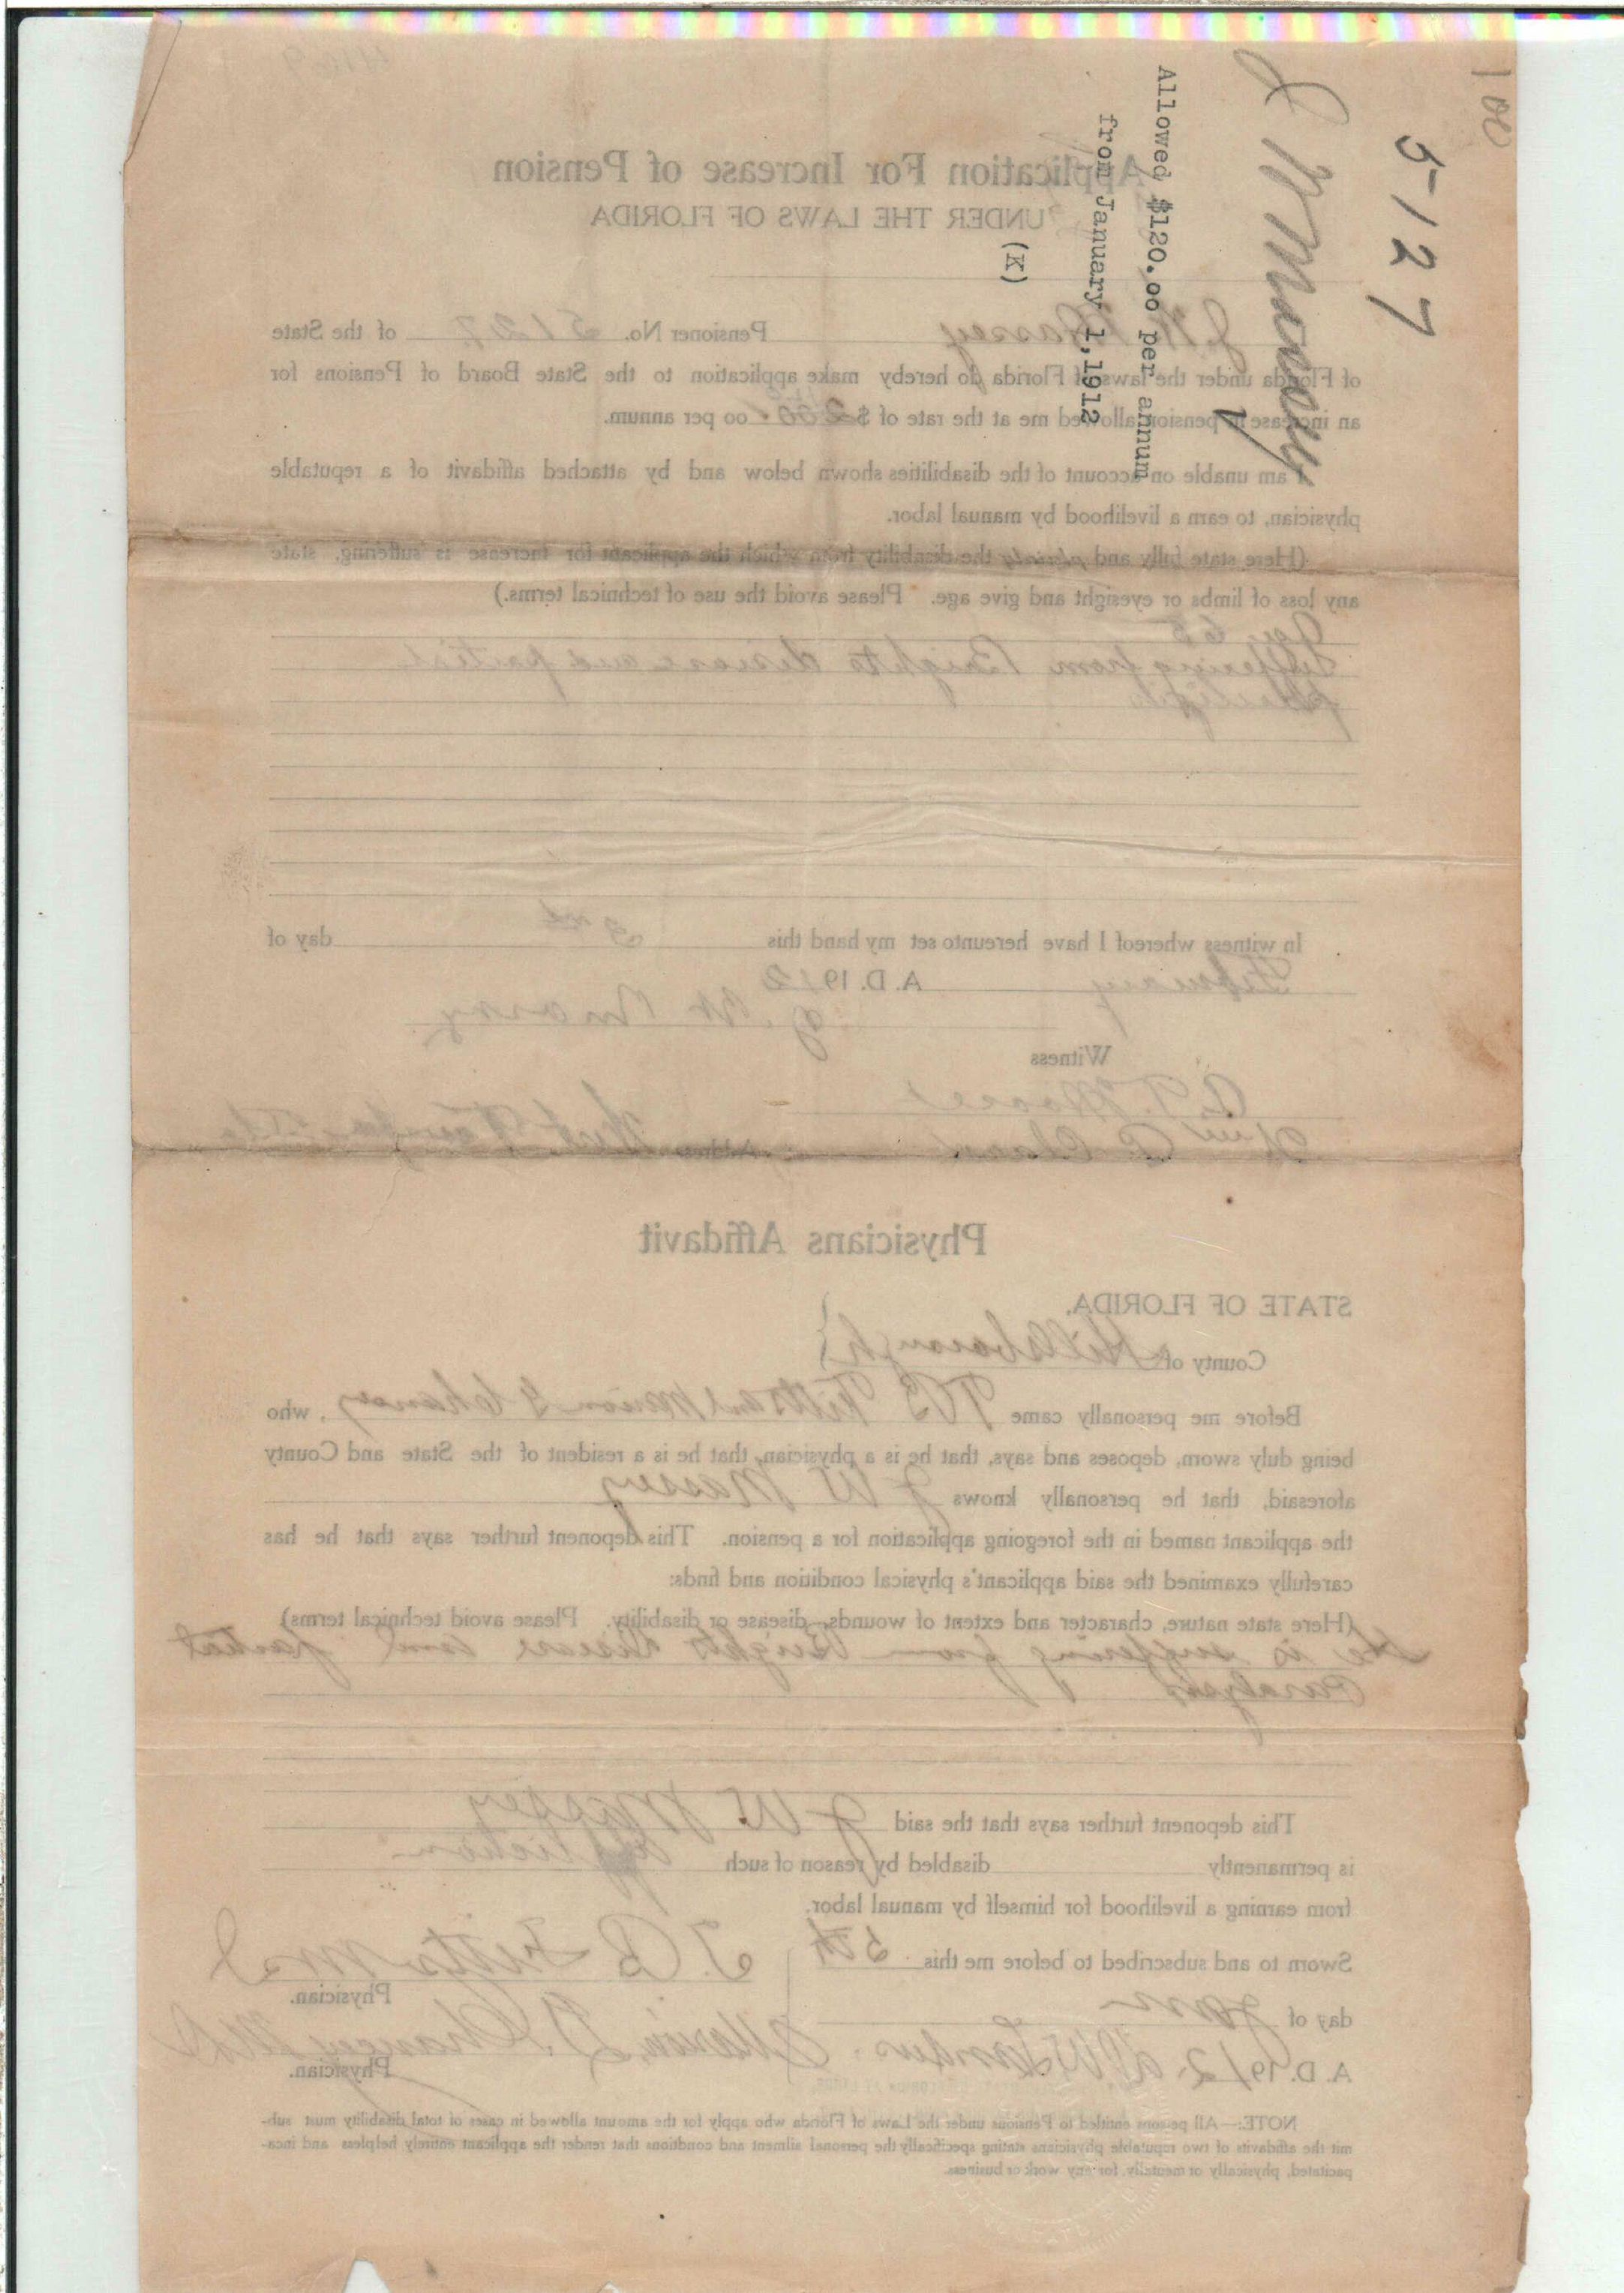 100
5-127
J W Massey
Allowed $120.00 per annum
from January 1, 1912
(K)
Application For Increase of Pension
UNDER THE LAWS OF FLORIDA
J. W. Massey Pensioner No. 5127 of the State
of Florida under the laws of Florida do hereby make application to the State Board of Pensions for
an increase in pension allowed me at the rate of $ oo per annum.
I am unable on account of the disabilities shown below and by attached affidavit of a reputable
physician, to earn a livelihood by manual labor.
(Here state fully and plainly the disability from which the applicant for increase is suffering, state
any loss of limbs or eyesight and give age. Please avoid the use of technical terms.)
Age 65
Suffering from Brights disease and partial
In witness whereof I have hereunto set my hand this 2nd day of
February A. D. 1912
J. W. Massey
Witness
C. T. Moore
Address West Tampa Fla
Physicians Affidavit
STATE OF FLORIDA,
County of Hillsborough
Before me personally came T B Fitts and Marion G Chancey, who
being duly sworn, deposes and says, that he is a physician, that he is a resident of the State and County
aforesaid, that he personally knows J W Massey
the applicant named in the foregoing application for a pension. This deponent further says that he has
carefully examined the said applicant's physical condition and finds:
(Here state nature, character and extent of wounds, disease or disability. Please avoid technical terms)
He is suffering from Brights disease and partial
Paralysis
This deponent further says that the said J W Massey
is permanently disabled by reason of such affliction
from earning a livelihood for himself by manual labor.
Sworn to and subscribed to before me this 5th
T. B. Fitts M D
Physician.
day of Jany
A. D. 1912
Marion G. Chancey MD
Physician.
NOTE:—All persons entitled to Pensions under the Laws of Florida who apply for the amount allowed in cases of total disability must sub-
mit the affidavits of two reputable physicians stating specifically the personal ailment and conditions that render the applicant entirely helpless and inca-
pacitated, physically or mentally, for any work or business.